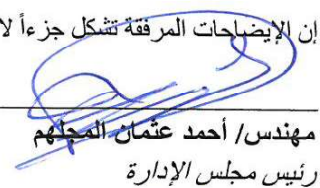 إن الإيضاحات المرفقة تشكل جزءاً لا
مهندس/ أحمد عثمان المجلهم
رئيس مجلس الإدارة